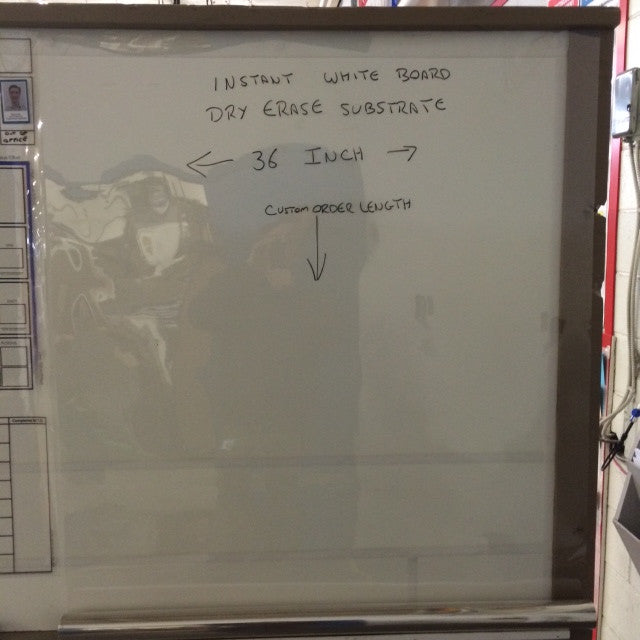 INSTANT WHITE BOARD
DRY ERASE SUBSTRATE
← 36 INCH →
CUSTOM ORDER LENGTH